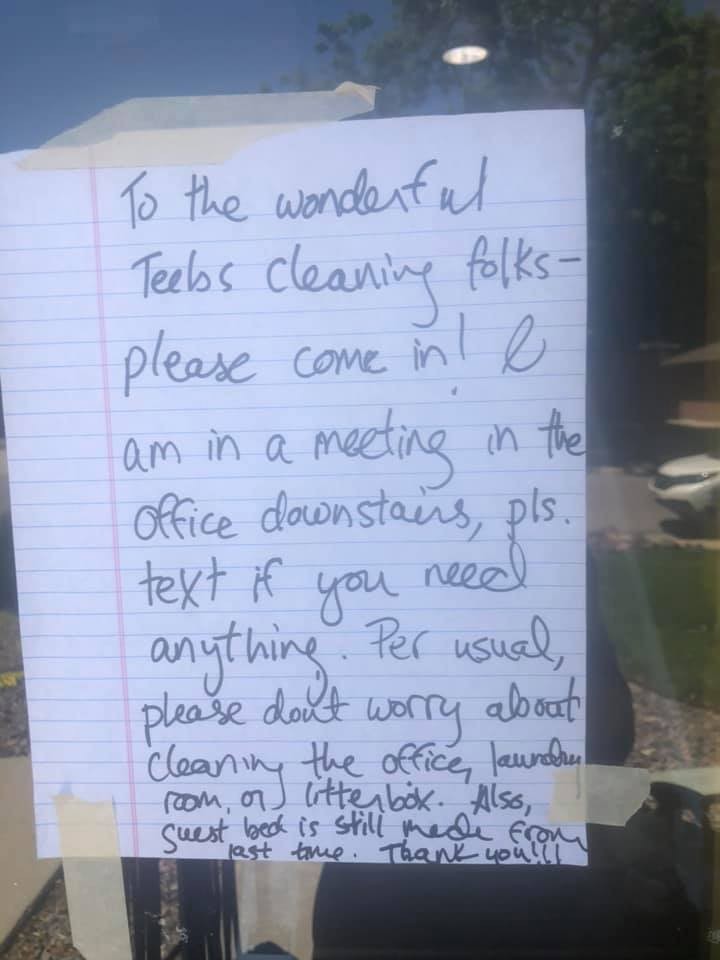 To the wonderful
Teebs cleaning folks-
please come in! I
am in a meeting in the
office downstairs, pls.
text if you need
anything. Per usual,
please don't worry about
cleaning the office, laundry
room, or litterbox. Also,
guest bed is still made from
last time. Thank you!!!